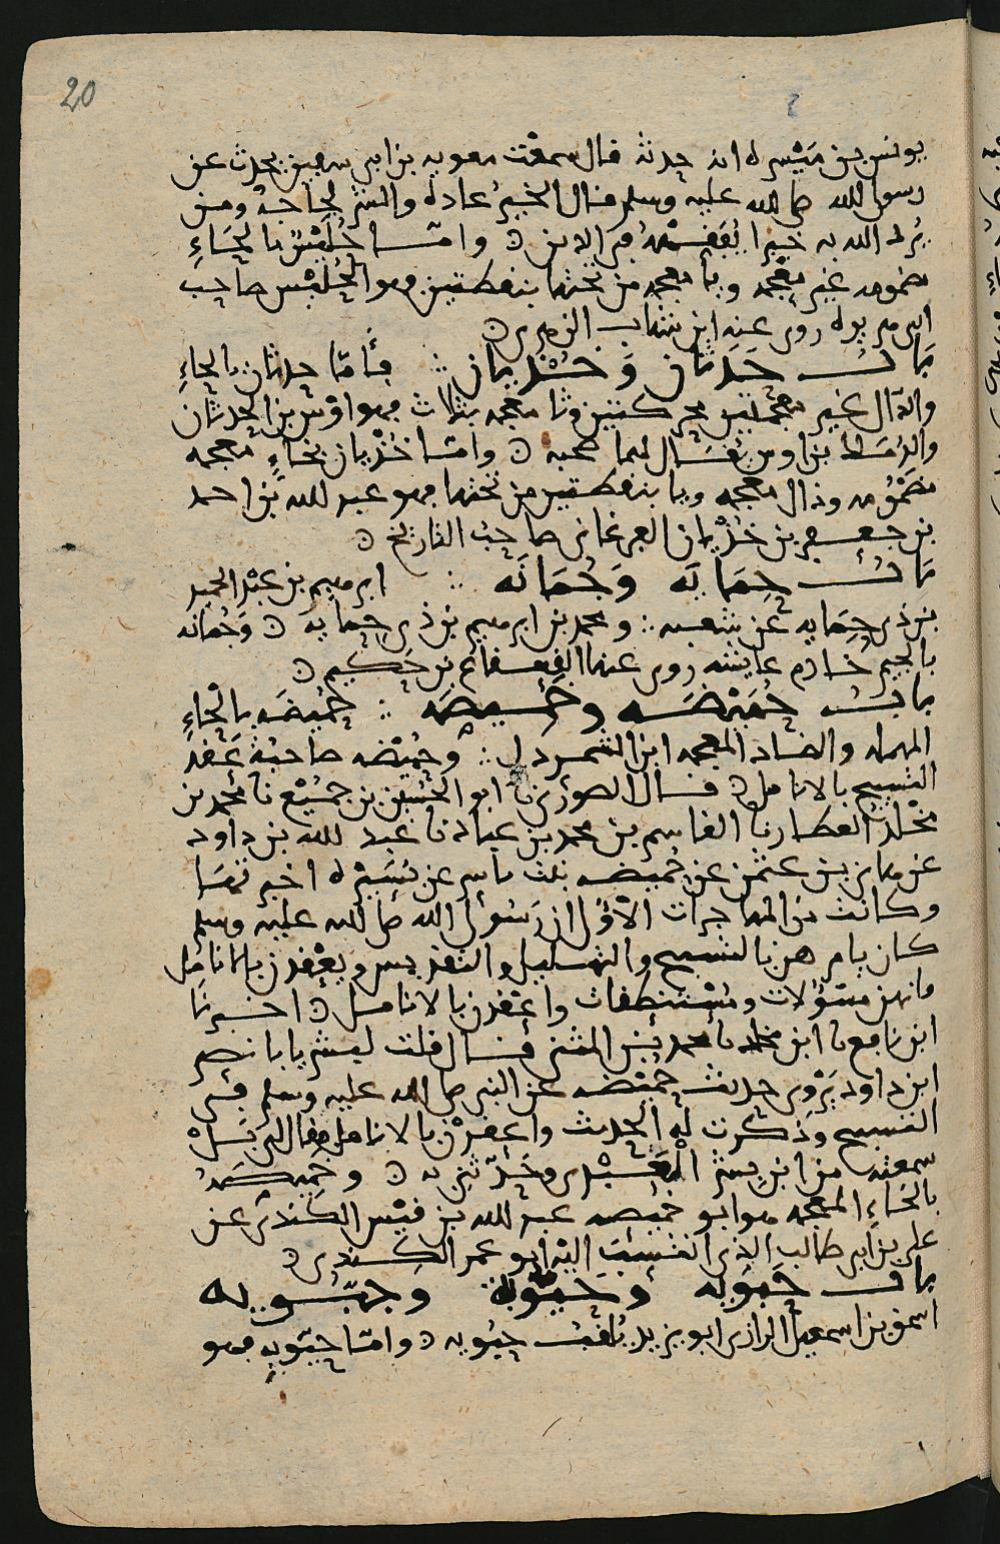 20
يونس بن ميسره انه حدثه قال سمعت معويه بن ابي سفين يحدث عن
رسول الله صلى الله عليه وسلم قال الخير عادة والشر لجاجة ومن
يرد الله به خيرا يفقهه في الدين واما خلبس بالخاء
مضمومه غير معجمه وبا معجمه من تحتها بنقطتين فهو الحليس صاحب
ابي هريره روى عنه ابن شهاب الزهري
باب حدثان وخذيان فاما حدثان بالحاء
والدال غير معجمتين محركتين وثا معجمه بثلاث فهو اوس بن الحدثان
بن اوس يقال لهما صحبه واما خذيان بخاء معجمه
مضمومه وذال معجمه ويا بنقطتين من تحتها فهو عبد الله بن احمد
بن جعفر بن خذيان الفرغاني صاحب التاريخ
باب حمايه وجمانه ابرهيم بن عبد الحميد
بن ذي حمايه عن شعبه ومحمد بن ابرهيم بن ذي حمايه وجمانه
بالجيم خادم عايشه روى عنها القعقاع بن حكيم
باب حميضه وخميصه حميضه بالحاء
المهمله والضاد المعجمه ابن الشمردل وحميضه صاحبة عقد
التسبيح بالانامل قال الصوري نا ابو الحسين بن جميع نا محمد بن
مخلد العطار نا القاسم بن محمد بن عباد نا عبد الله بن داود
عن هاني بن عثمن عن حميضه بنت ياسر عن يسيره اخبرتها
وكانت من المهاجرات الاول ان رسول الله صلى الله عليه وسلم
كان يامرهن بالتسبيح والتهليل والتقديس ويعقدن بالانامل
فانهن مسؤلات ومستنطقات واعقدن بالانامل اخبرنا
ابن نافع نا ابن مخلد نا محمد بن المثنى قال قلت لبشر يابا نصر
ابن داود يروي حديث حميضه عن النبي صلى الله عليه وسلم في
التسبيح وذكرت له الحديث واعقدن بالانامل فقال لي نسله
سمعته من ابن بشر العبدي وحدثني به وخميصه
بالخاء المعجمه هو ابو خميصه عبد الله بن قيس الكندي عن
علي بن ابي طالب الذي انتسب اليه ابو عمر الكندي
باب حبويه وحيويه وجبويه
اسحق بن اسمعيل الرازي ابو يزيد يلقب حبويه واما حيويه فهو